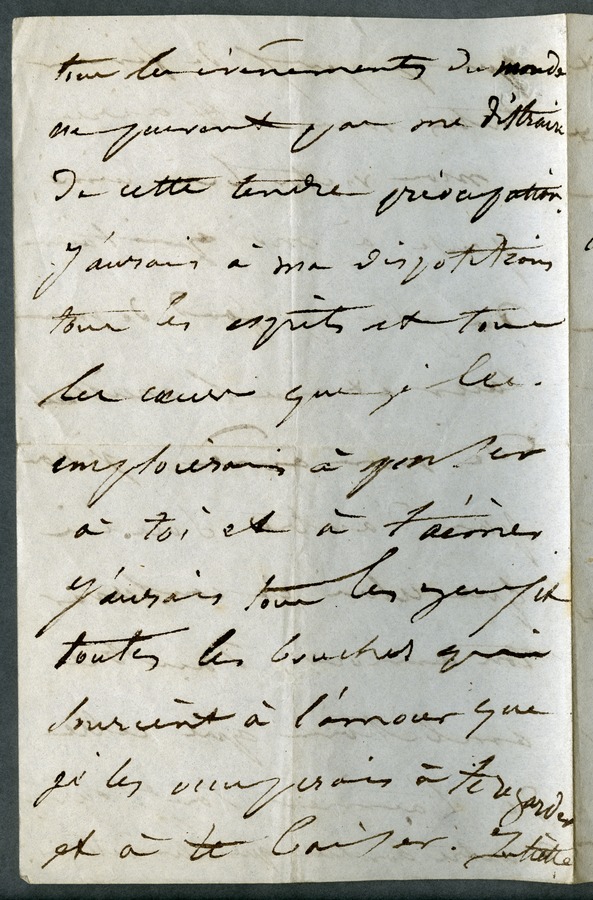 tous les événements du monde
ne peuvent pas me distraire
de cette tendre préocupation.
J'aurais à ma dispotitions
tous les esprits et tous
les cœurs que je les
emploierais à penser
à toi et à t'aimer
J'aurais tous les yeux et
toutes les bouches qui
sourient à l'amour que
je les occuperais à te regarder
et à te baiser. Juliette